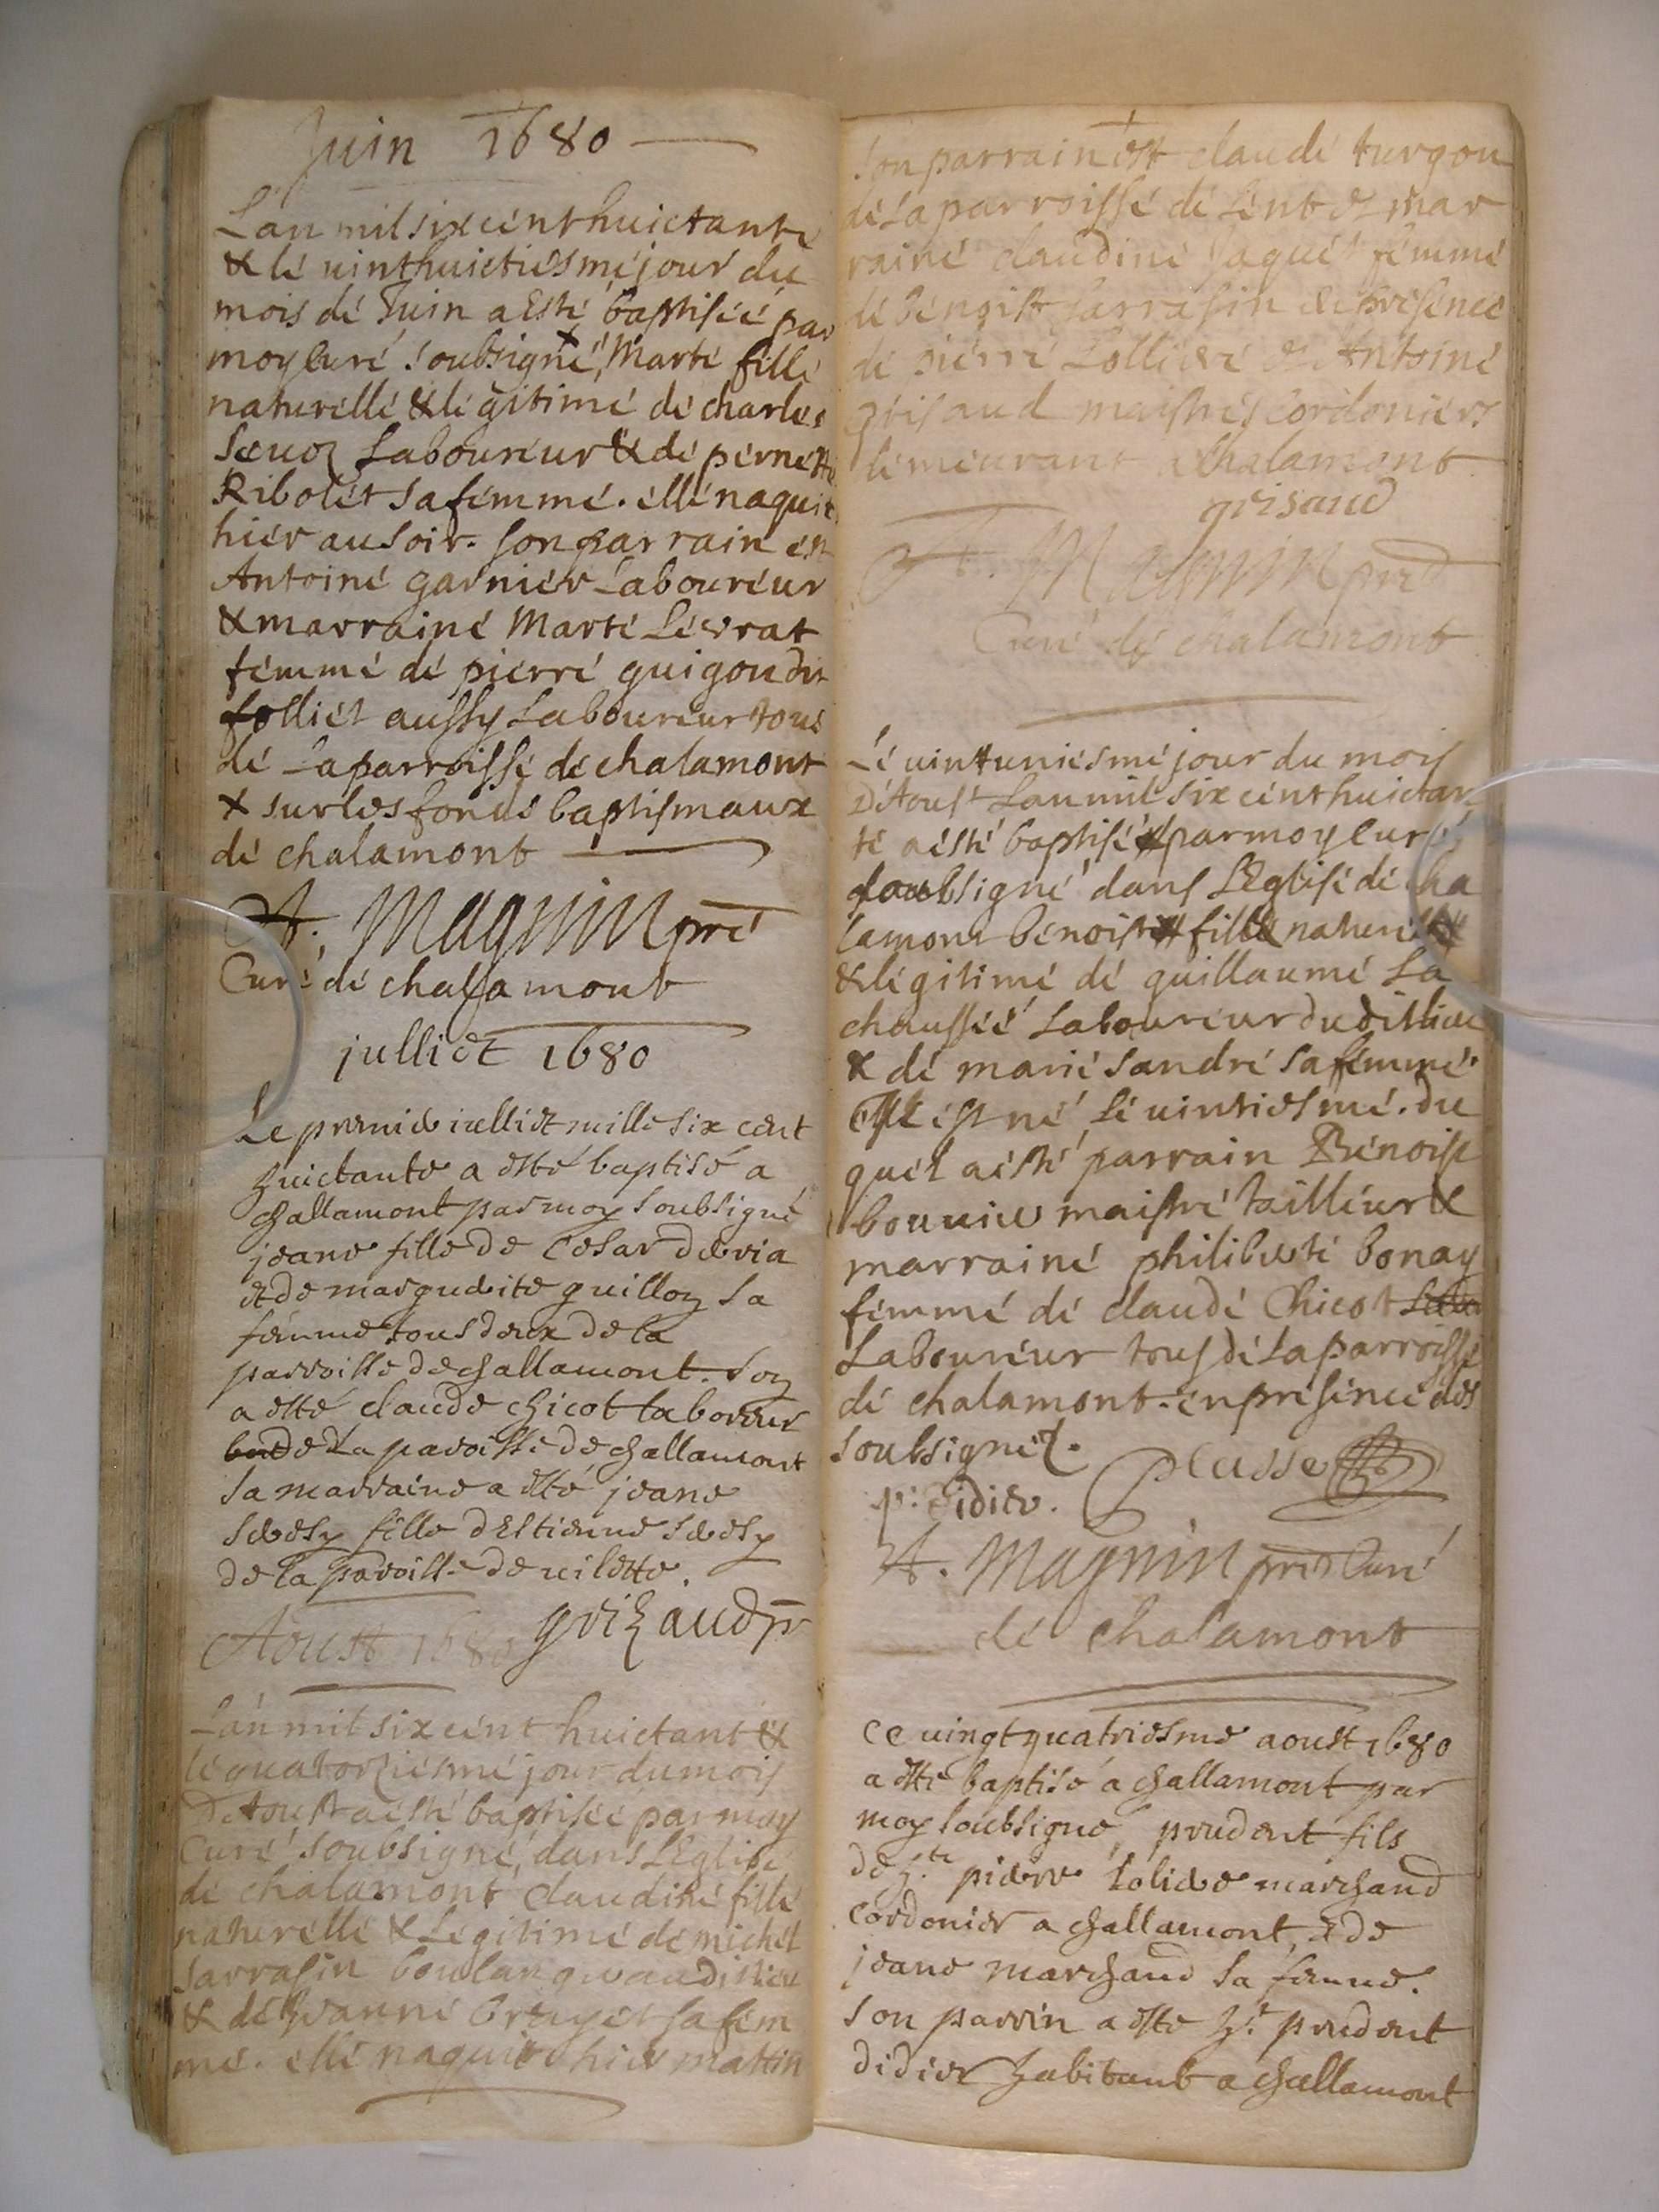 Juin 1680
Lan mil six cent huictante
& le vint huictiesme jour du
mois de Juin a Esté baptisée par
moy curé soubsigné, Marte fille
naturelle & legitime de charles
Sevoz Laboureur & de pernette
Ribolet sa femme. elle naquit
hier au soir. son parrain est
Antoine garnier Laboureur
& marraine Marte Levrat
femme de pierre guigou dit
folliet aussy Laboureur tous
de La parroisse de chalamont
& sur les fonds baptismaux
de chalamont
A. Magnin pre
Curé de chalamont
julliet 1680
Le premier iulliet mille six cent
huictante a esté baptisé a
challamont par moy soubsigné
jeane fille de Cesar deria
et de marguerite guilloz sa
femme tous deux de la
parroisse de challamont. Son
a esté claude chicot laboreur
de La paroisse de challamont
sa marraine a esté jeane
fille d'Estienne
de la paroisse de vilette.
grizaud pr
Aoust 1680
Lan mil six cent huictant &
le quatorziesme jour du mois
D'Aoust a esté baptisée par moy
Curé soubsigné, dans L'Eglise
de chalamont claudine fille
naturelle & Legitime de michel
sarrasin boulanger audit lieu
& de Jeanne bruyer sa fem
me. elle naquit hier mattin
son parrain est claude turgou
de La parroisse de Lent & mar
raine claudine Jaquet femme
de benoist sarrasin en presence
de pierre Lolliere & Antoine
grisaud maistres cordoniers
demeurant a Chalamont
grisaud
A. Magnin pre
Curé de chalamont
Le vint uniesme jour du mois
D'Aoust Lan mil six cent huictan
te a esté baptisé par moy curé
soubsigné dans L'Eglise de cha
lamont benoist fils naturel
& legitime de guillaume La
chaussée Laboureur dudit lieu
& de marie sandre sa femme.
Il est né Le vintiesme. du
quel a esté parrain Benoist
bouvier maistre tailleur &
marraine philiberte bonay
femme de claude Chicot
Laboureur tous de La parroisse
de chalamont. en presence des
soubsignez.
p. Didier. Plasse
A. Magnin pre Curé
de chalamont
Ce vingt quatriesme aoust 1680
a esté baptisé a challamont par
moy soubsigné, prudent fils
de h.te pierre loliere marchand
cordonier a challamont, et de
jeane marchand sa femme.
son parrin a esté h.e prudent
didier habitant a challamont